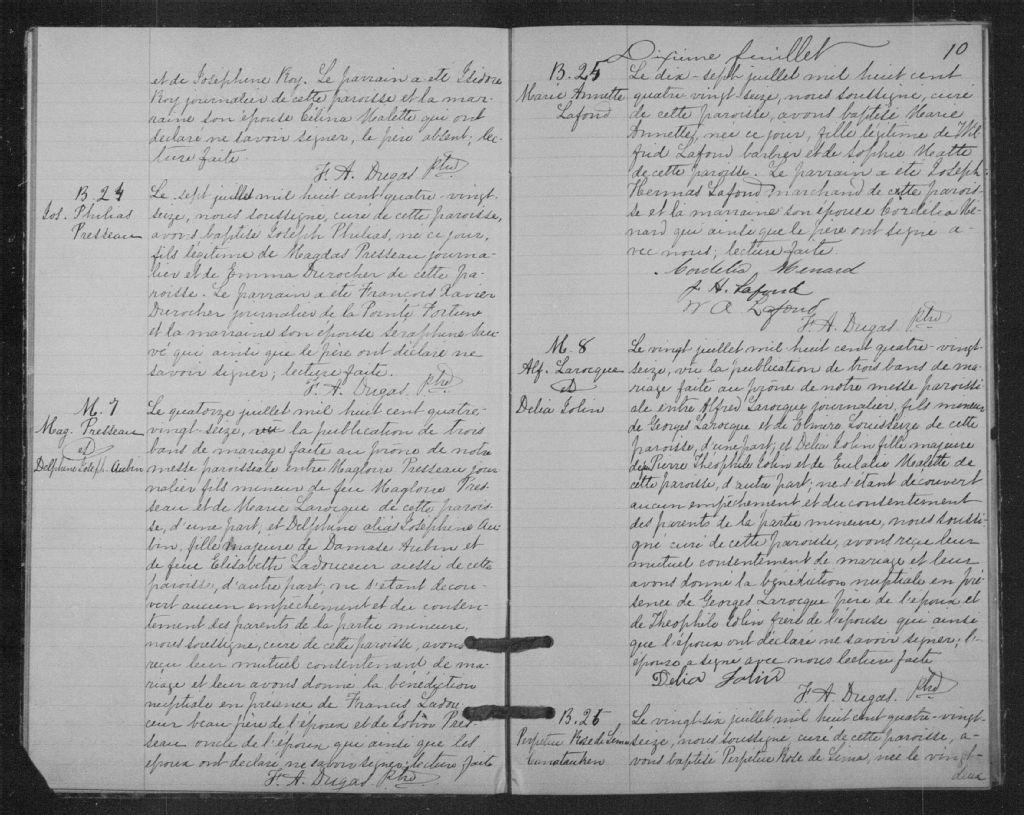 et de Josephine Roy. Le parrain a ete Isidore
Roy journalier de cette paroisse et la mar-
raine son épouse Célina Malette qui ont
declaré ne savoir signer, le père absent; lec-
ture faite.
F. A. Dugas Ptre
B. 24
Jos. Philias
Presseau
Le sept juillet mil huit cent quatre-vingt-
seize, nous soussigné, curé de cette paroisse,
avons baptisé Joseph Philias, né ce jour,
fils légitime de Magdas Presseau journa-
lier et de Emma Durocher de cette pa-
roisse. Le parrain a ete François Xavier
Durocher journalier de la Pointe Fortune
et la marraine son épouse Seraphine Sau-
vé qui ainsi que le père ont déclaré ne
savoir signer; lecture faite.
F. A. Dugas Ptre
M. 7
Mag. Presseau
et
Delphine Joseph. Aubin
Le quatorze juillet mil huit cent quatre-
vingt-seize, vu la publication de trois
bans de mariage faite au prone de notre
messe paroissiale entre Magloire Presseau jour-
nalier fils mineur de feu Magloire Pres-
seau et de Marie Larocque de cette parois-
se, d'une part, et Delphine alias Josephine Au-
bin, fille majeure de Damase Aubin et
de feue Elisabeth Ladouceur aussi de cette
paroisse, d'autre part; ne s'etant decou-
vert aucun empêchement et du consen-
tement des parents de la partie mineure,
nous soussigné, curé de cette paroisse, avons
reçu leur mutuel consentement de ma-
riage et leur avons donné la bénédiction
nuptiale en présence de Francis Ladou-
ceur beau père de l'époux et de Pres-
seau oncle de l'époux que ainsi que les
époux ont declaré ne savoir signer; lecture faite
F. A. Dugas Ptre
Dixième feuillet
10
B. 25
Marie Annette
Lafond
Le dix-sept juillet mil huit cent
quatre-vingt-seize, nous soussigné, curé
de cette paroisse, avons baptisé Marie
Annette, née ce jour, fille légitime de Wil-
frid Lafond barbier et de Sophie Matte
de cette paroisse. Le parrain a ete Joseph
Hermas Lafond marchand de cette parois-
se et la marraine son épouse Cordélia Mé-
nard qui ainsi que le père ont signé a-
vec nous; lecture faite.
Cordelia Menard
J. H. Lafond
W A Lafond
F. A. Dugas Ptre
M. 8
Alf. Larocque
et
Delia Jolin
Le vingt juillet mil huit cent quatre-vingt-
seize, vu la publication de trois bans de ma-
riage faite au prône de notre messe paroissi-
ale entre Alfred Larocque journalier, fils mineur
de Georges Larocque et de Elmire Louisseize de cette
paroisse, d'une part; et Délia Jolin fille majeure
de Pierre Théophile Jolin et de Eulalie Malette de
cette paroisse, d'autre part; ne s'étant découvert
aucun empêchement et du consentement
des parents de la partie mineure, nous soussi-
gné curé de cette paroisse, avons reçu leur
mutuel consentement de mariage et leur
avons donné la bénédiction nuptiale en pré-
sence de Georges Larocque père de l'époux et
de Théophile Jolin frère de l'épouse qui ainsi
que l'époux ont déclaré ne savoir signer; l'-
épouse a signé avec nous lecture faite
Delia Jolin
F. A. Dugas Ptre
B. 26
Perpétue Rose de Lima
Le vingt-six juillet mil huit cent quatre-vingt-
seize, nous soussigné, curé de cette paroisse, a-
vons baptisé Perpétue Rose de Lima, née le vingt-
deux